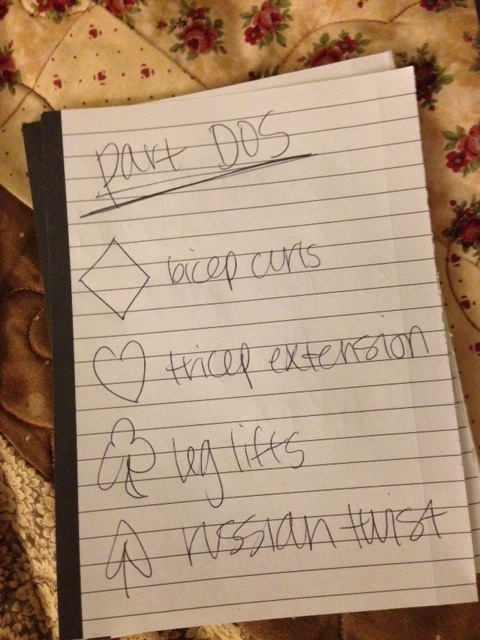 part DOS
bicep curls
tricep extension
leg lifts
russian twist